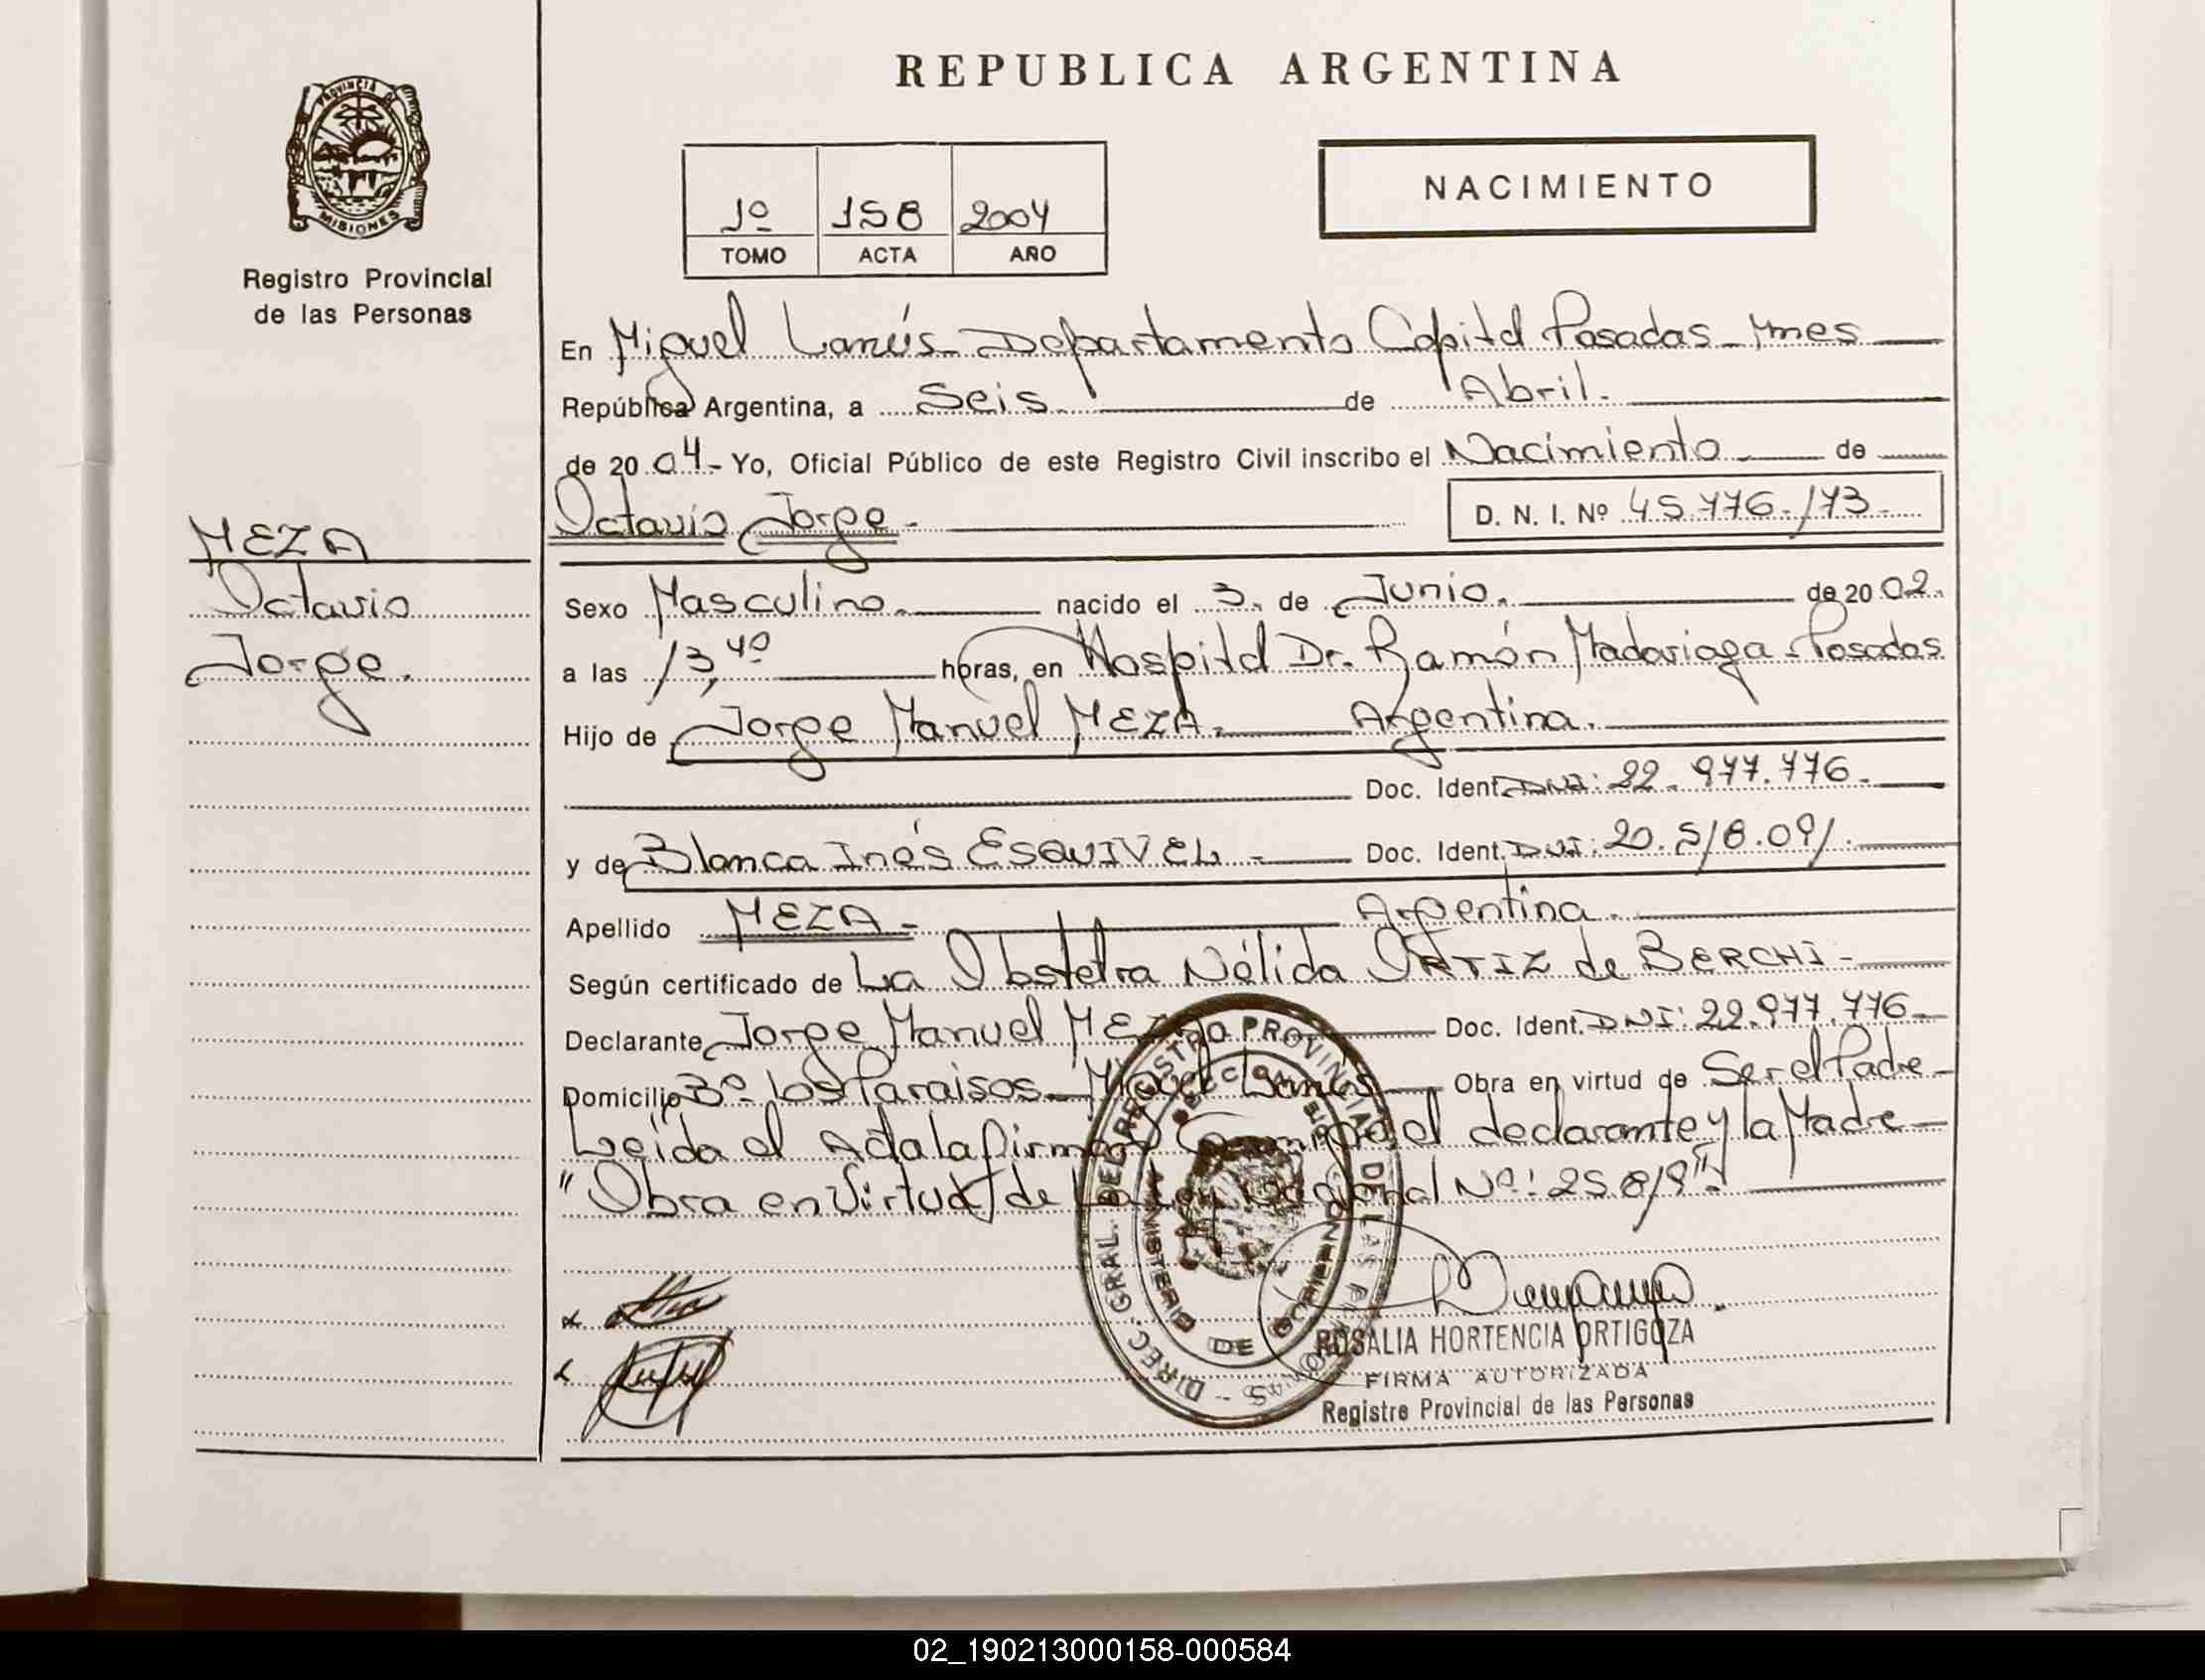 REPUBLICA ARGENTINA
PROVINCIA DE
MISIONES
Registro Provincial
de las Personas
1º 158 2004
TOMO ACTA AÑO
NACIMIENTO
En Miguel Lanús Departamento Capital Posadas Mnes
República Argentina, a Seis de Abril.
de 2004- Yo, Oficial Público de este Registro Civil inscribo el Nacimiento de
Octavio Jorge - D. N. I. Nº 45.776.173
MEZA
Octavio
Jorge.
Sexo Masculino. nacido el 3. de Junio. de 2002.
a las 13,40 horas, en Hospital Dr. Ramón Madariaga - Posadas
Hijo de Jorge Manuel MEZA. Argentina.
Doc. Ident. DNI: 22.977.776.
y de Blanca Inés ESQUIVEL - Doc. Ident. DNI: 20.518.091.
Apellido MEZA - Argentina.
Según certificado de La Obstetra Nélida ORTIZ de BERCHI -
Declarante Jorge Manuel MEZA Doc. Ident. DNI: 22.977.776
Domicilio Bº los Paraisos - Miguel Lanús Obra en virtud de Ser el Padre -
Leída el Acta la firman Conmigo el declarante y la Madre -
"Obra en Virtud de la Ley Nacional Nº: 25819"
DIREC. GRAL. DEL REGISTRO PROVINCIAL DE LAS PERSONAS - MISIONES
MINISTERIO DE GOBIERNO
ROSALIA HORTENCIA ORTIGOZA
FIRMA AUTORIZADA
Registro Provincial de las Personas
02_190213000158-000584